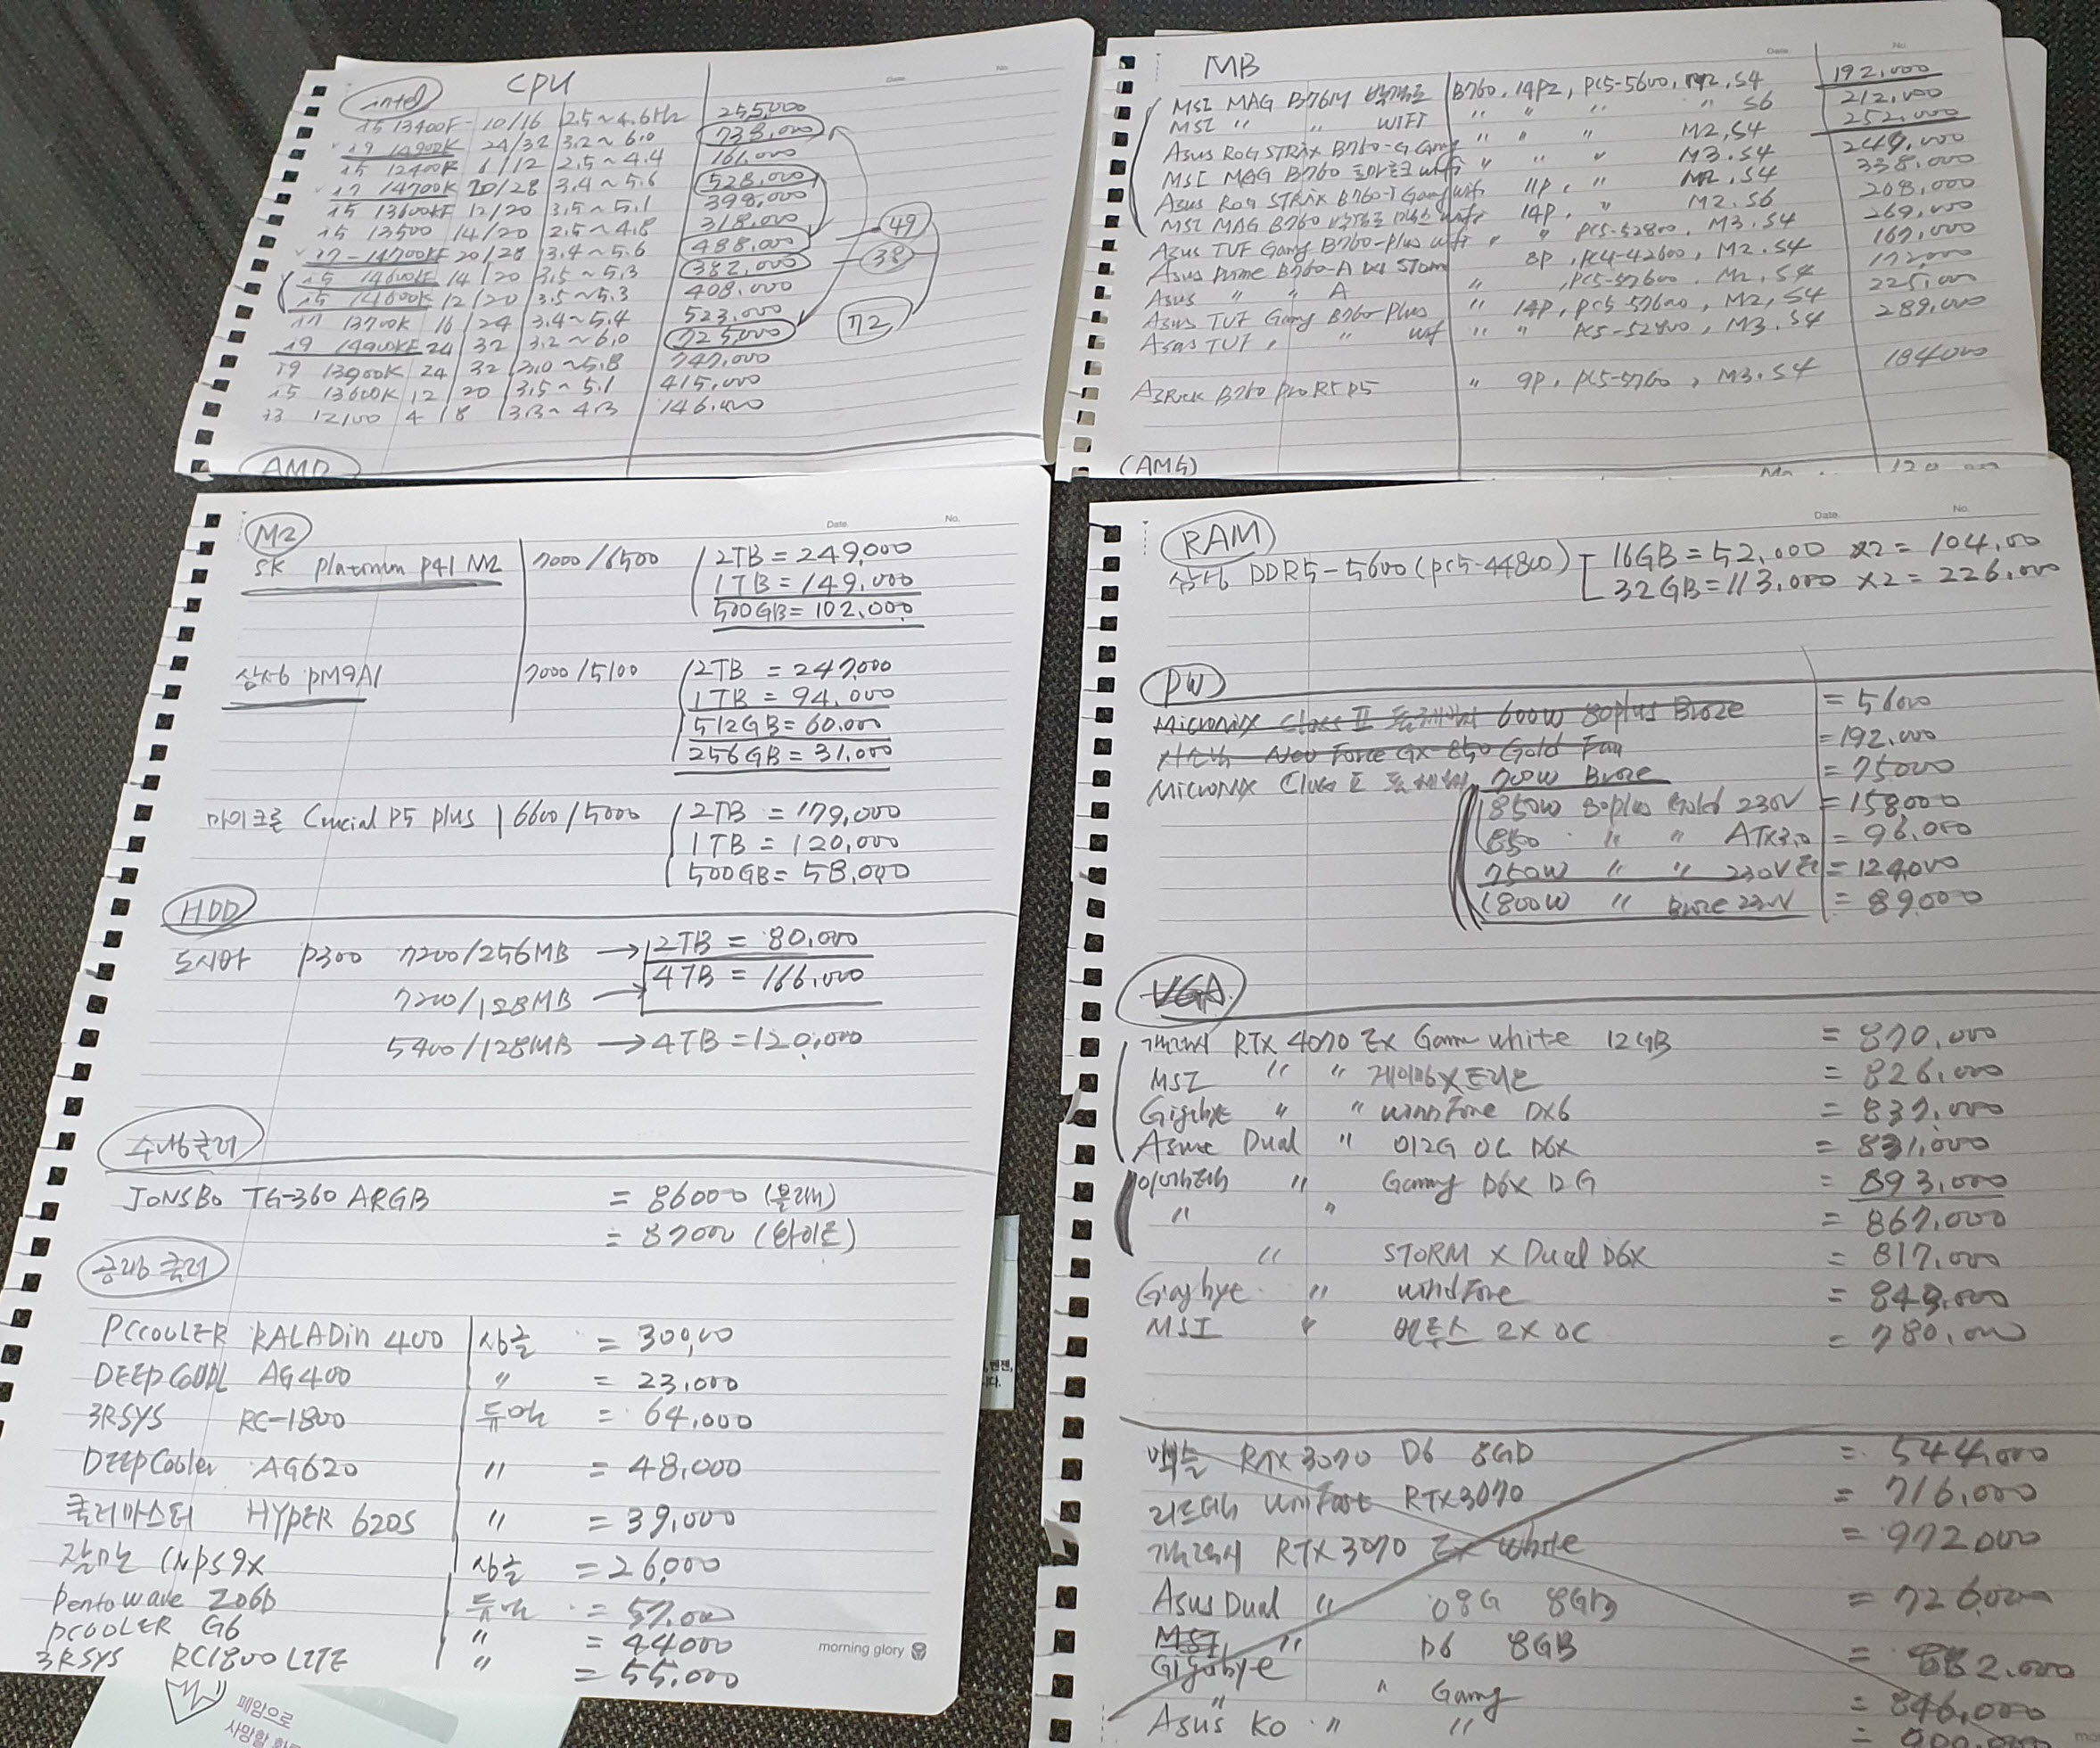 CPU
intel
i5 13400F - 10/16 2.5~4.6Hz 255,000
i9 14900K 24/32 3.2~6.0 738,000
i5 12400F 6/12 2.5~4.4 161,000
i7 14700K 20/28 3.4~5.6 528,000
i5 13600KF 12/20 3.5~5.1 398,000
i5 13500 14/20 2.5~4.8 318,000
i7-14700KF 20/28 3.4~5.6 488,000 49
i5 14600KF 14/20 3.5~5.3 382,000 38
i5 14600K 12/20 3.5~5.3 408,000
i7 13700K 16/24 3.4~5.4 523,000 72
i9 14900KF 24/32 3.2~6.0 725,000
i9 13900K 24/32 3.0~5.8 747,000
i5 13600K 12/20 3.5~5.1 415,000
i3 12100 4/8 3.3~4.3 146,000
AMD
MB
Date No.
MSI MAG B760M 박격포 B760, 14P2, PC5-5600, M2, S4 192,000
MSI " " WIFI " " " " S6 212,000
Asus ROG STRIX B760-G Gamg " " " M2, S4 252,000
MSI MAG B760 토마호크 wifi " " " M3.S4 249,000
Asus ROG STRIX B760-I Gamg wifi 11P, " M2.S4 338,000
MSI MAG B760 박격포 맥스 wifi 14P, " M2.S6 208,000
Asus TUF Gamg B760-Plus wifi " " PC5-52800. M3.S4 269,000
Asus Prime B760-A 8P, PC4-42600, M2.S4 167,000
Asus " " A " , PC5-57600. M2.S4 172,000
Asus TUF Gamg B760-Plus " 14P, PC5-57600, M2, S4 225,000
Asus TUF " " wif " " PC5-52800, M3.S4 289,000
ASRock B760 pro RS P5 " 9P, PC5-5760, M3.S4 184000
(AM5)
M2
Date. No.
SK Platinum P41 M2 7000/6500 2TB = 249,000
1TB = 149,000
500GB = 102.000
삼성 PM9A1 7000/5100 2TB = 247,000
1TB = 94,000
512GB = 60,000
256GB = 31,000
마이크론 Crucial P5 plus 6600/5000 2TB = 179,000
1TB = 120,000
500GB = 58,000
HDD
도시바 P300 7200/256MB → 2TB = 80,000
7200/128MB → 4TB = 166,000
5400/128MB → 4TB = 120,000
수냉쿨러
JONSBO TG-360 ARGB = 86000 (블랙)
= 87000 (화이트)
공랭쿨러
PCCOOLER PALADin 400 싱글 = 30,000
DEEPCOOL AG400 " = 23,000
3RSYS RC-1800 듀얼 = 64,000
DEEPCooler AG620 " = 48,000
쿨러마스터 HYPER 620S " = 39,000
잘만 CNPS9X 싱글 = 26,000
Pentawave Z06D 듀얼 = 57,000
PCOOLER G6 " = 44000
3RSYS RC1800 LITE " = 55,000
morning glory
폐암으로
RAM
Date. No.
삼성 DDR5-5600 (PC5-44800) 16GB = 52,000 x2 = 104,00
32GB = 113,000 x2 = 226,000
PW
MicroniX Class II 풀체인지 600W 80plus Broze = 5600
시소닉 Neo Force GX-850 Gold Fan = 192,000
MicroniX Class II 풀체인지 700W Broze = 75000
850W 80plus Gold 230V = 158,000
850 " " ATX3.0 = 96,000
750W " " 230V = 124,000
800W " Broze 230V = 89,000
VGA
갤럭시 RTX 4070 EX Game white 12GB = 870,000
MSI " " 게이밍X트리오 = 826,000
Gigabye " " windFore DX6 = 837,000
Asus Dual " O12G OC D6X = 831,000
이엠텍 " Gamg D6X 12G = 893,000
" " = 867,000
" STORM X Dual D6X = 817,000
Gigabye " windFore = 849,000
MSI " 벤투스 2X OC = 780,000
맥슨 RTX 3070 D6 8GD = 544,000
리드텍 WinFast RTX3070 = 716,000
갤럭시 RTX 3070 EX white = 972,000
Asus Dual " O8G 8GB = 726,000
MSI " D6 8GB = 882,000
Gigabye " Gamg = 846,000
Asus KO " "